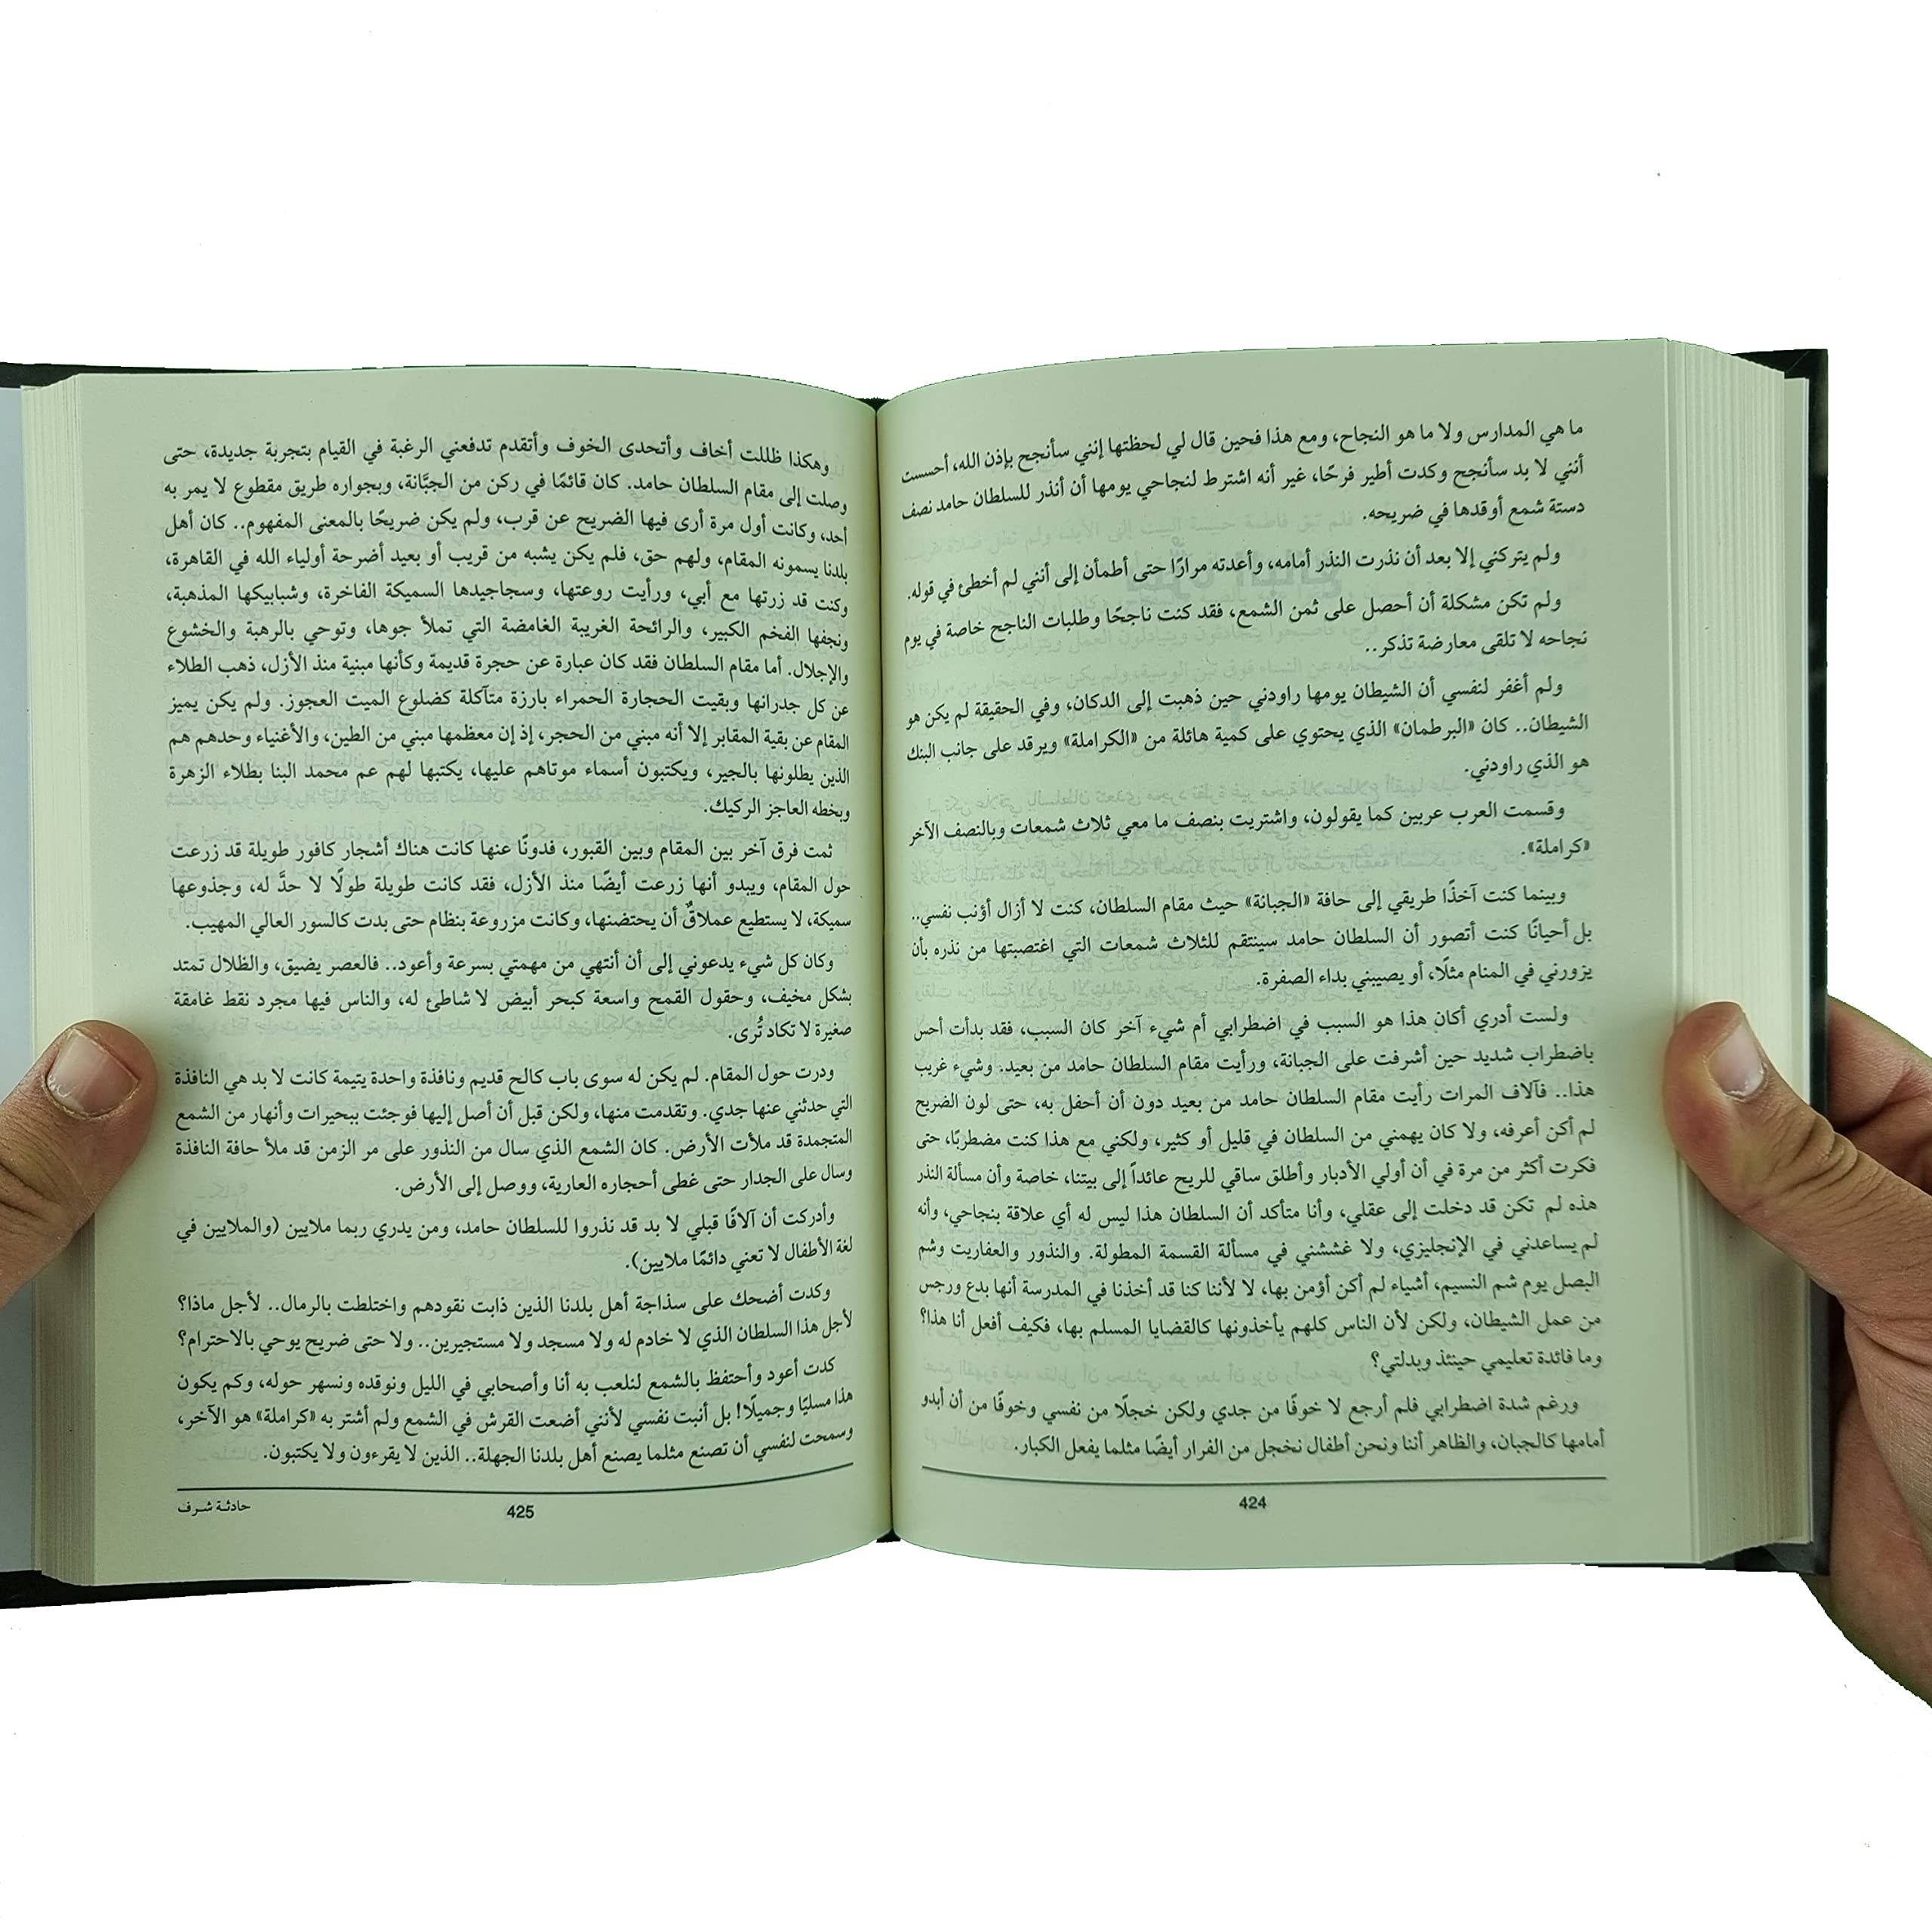 ما هي المدارس ولا ما هو النجاح، ومع هذا فحين قال لي لحظتها إنني سأنجح بإذن الله، أحسست
أنني لا بد سأنجح وكدت أطير فرحًا، غير أنه اشترط لنجاحي يومها أن أنذر للسلطان حامد نصف
دستة شمع أوقدها في ضريحه.
ولم يتركني إلا بعد أن نذرت النذر أمامه، وأعدته مرارًا حتى أطمأن إلى أنني لم أخطئ في قوله.
ولم تكن مشكلة أن أحصل على ثمن الشمع، فقد كنت ناجحًا وطلبات الناجح خاصة في يوم
نجاحه لا تلقى معارضة تذكر..
ولم أغفر لنفسي أن الشيطان يومها راودني حين ذهبت إلى الدكان، وفي الحقيقة لم يكن هو
الشيطان.. كان «البرطمان» الذي يحتوي على كمية هائلة من «الكراملة» ويرقد على جانب البنك
هو الذي راودني.
وقسمت العرب عربين كما يقولون، واشتريت بنصف ما معي ثلاث شمعات وبالنصف الآخر
«كراملة».
وبينما كنت آخذًا طريقي إلى حافة «الجبانة» حيث مقام السلطان، كنت لا أزال أؤنب نفسي..
بل أحيانًا كنت أتصور أن السلطان حامد سينتقم للثلاث شمعات التي اغتصبتها من نذره بأن
يزورني في المنام مثلًا، أو يصيبني بداء الصفرة.
ولست أدري أكان هذا هو السبب في اضطرابي أم شيء آخر كان السبب، فقد بدأت أحس
باضطراب شديد حين أشرفت على الجبانة، ورأيت مقام السلطان حامد من بعيد. وشيء غريب
هذا.. فآلاف المرات رأيت مقام السلطان حامد من بعيد دون أن أحفل به، حتى لون الضريح
لم أكن أعرفه، ولا كان يهمني من السلطان في قليل أو كثير، ولكني مع هذا كنت مضطربًا، حتى
فكرت أكثر من مرة في أن أولي الأدبار وأطلق ساقي للريح عائداً إلى بيتنا، خاصة وأن مسألة النذر
هذه لم تكن قد دخلت إلى عقلي، وأنا متأكد أن السلطان هذا ليس له أي علاقة بنجاحي، وأنه
لم يساعدني في الإنجليزي، ولا غششني في مسألة القسمة المطولة. والنذور والعفاريت وشم
البصل يوم شم النسيم، أشياء لم أكن أؤمن بها، لا لأننا كنا قد أخذنا في المدرسة أنها بدع ورجس
من عمل الشيطان، ولكن لأن الناس كلهم يأخذونها كالقضايا المسلم بها، فكيف أفعل أنا هذا؟
وما فائدة تعليمي حينئذ وبدلتي؟
ورغم شدة اضطرابي فلم أرجع لا خوفًا من جدي ولكن خجلًا من نفسي وخوفًا من أن أبدو
أمامها كالجبان، والظاهر أننا ونحن أطفال نخجل من الفرار أيضًا مثلما يفعل الكبار.
424
وهكذا ظللت أخاف وأتحدى الخوف وأتقدم تدفعني الرغبة في القيام بتجربة جديدة، حتى
وصلت إلى مقام السلطان حامد. كان قائمًا في ركن من الجبَّانة، وبجواره طريق مقطوع لا يمر به
أحد، وكانت أول مرة أرى فيها الضريح عن قرب، ولم يكن ضريحًا بالمعنى المفهوم.. كان أهل
بلدنا يسمونه المقام، ولهم حق، فلم يكن يشبه من قريب أو بعيد أضرحة أولياء الله في القاهرة،
وكنت قد زرتها مع أبي، ورأيت روعتها، وسجاجيدها السميكة الفاخرة، وشبابيكها المذهبة،
ونجفها الفخم الكبير، والرائحة الغريبة الغامضة التي تملأ جوها، وتوحي بالرهبة والخشوع
والإجلال. أما مقام السلطان فقد كان عبارة عن حجرة قديمة وكأنها مبنية منذ الأزل، ذهب الطلاء
عن كل جدرانها وبقيت الحجارة الحمراء بارزة متآكلة كضلوع الميت العجوز. ولم يكن يميز
المقام عن بقية المقابر إلا أنه مبني من الحجر، إذ إن معظمها مبني من الطين، والأغنياء وحدهم هم
الذين يطلونها بالجير، ويكتبون أسماء موتاهم عليها، يكتبها لهم عم محمد البنا بطلاء الزهرة
وبخطه العاجز الركيك.
ثمت فرق آخر بين المقام وبين القبور، فدونًا عنها كانت هناك أشجار كافور طويلة قد زرعت
حول المقام، ويبدو أنها زرعت أيضًا منذ الأزل، فقد كانت طويلة طولًا لا حدَّ له، وجذوعها
سميكة، لا يستطيع عملاقٌ أن يحتضنها، وكانت مزروعة بنظام حتى بدت كالسور العالي المهيب.
وكان كل شيء يدعوني إلى أن أنتهي من مهمتي بسرعة وأعود.. فالعصر يضيق، والظلال تمتد
بشكل مخيف، وحقول القمح واسعة كبحر أبيض لا شاطئ له، والناس فيها مجرد نقط غامقة
صغيرة لا تكاد تُرى.
ودرت حول المقام. لم يكن له سوى باب كالح قديم ونافذة واحدة يتيمة كانت لا بد هي النافذة
التي حدثني عنها جدي. وتقدمت منها، ولكن قبل أن أصل إليها فوجئت ببحيرات وأنهار من الشمع
المتجمدة قد ملأت الأرض. كان الشمع الذي سال من النذور على مر الزمن قد ملأ حافة النافذة
وسال على الجدار حتى غطى أحجاره العارية، ووصل إلى الأرض.
وأدركت أن آلافًا قبلي لا بد قد نذروا للسلطان حامد، ومن يدري ربما ملايين (والملايين في
لغة الأطفال لا تعني دائمًا ملايين).
وكدت أضحك على سذاجة أهل بلدنا الذين ذابت نقودهم واختلطت بالرمال.. لأجل ماذا؟
لأجل هذا السلطان الذي لا خادم له ولا مسجد ولا مستجيرين.. ولا حتى ضريح يوحي بالاحترام؟
كدت أعود وأحتفظ بالشمع لنلعب به أنا وأصحابي في الليل ونوقده ونسهر حوله، وكم يكون
هذا مسليًا وجميلًا! بل أنبت نفسي لأنني أضعت القرش في الشمع ولم أشتر به «كراملة» هو الآخر،
وسمحت لنفسي أن تصنع مثلما يصنع أهل بلدنا الجهلة.. الذين لا يقرءون ولا يكتبون.
425
حادثة شرف